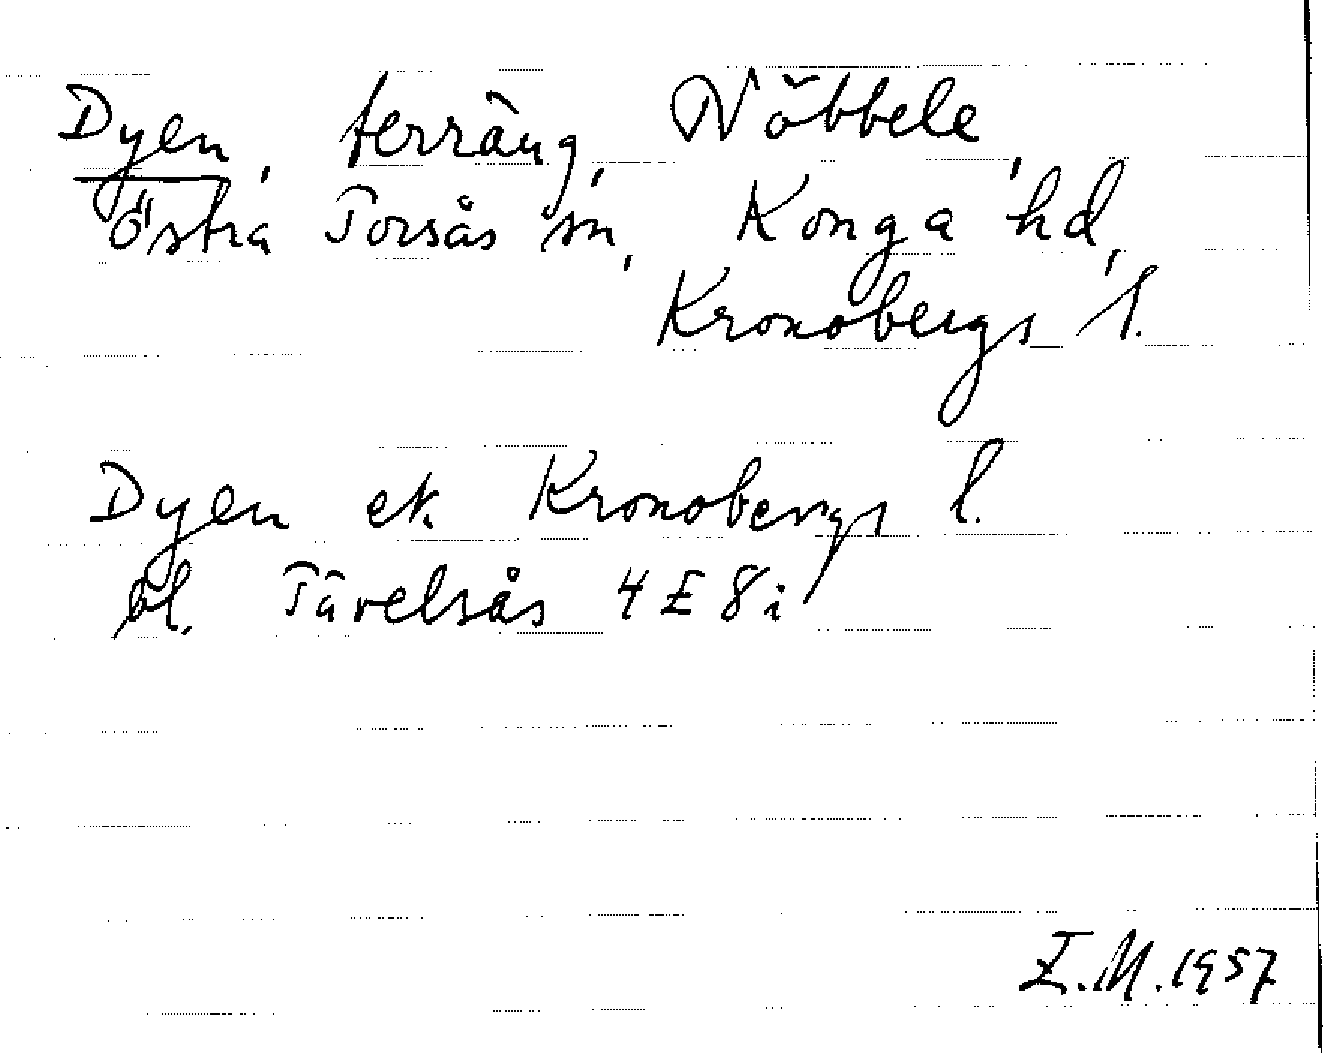 Dyen, terräng, Nöbbele,
Östra Torsås sn, Konga hd,
Kronobergs l.
Dyen ek. Kronobergs l.
bl. Tävelsås 4 E 8 i
E.M. 1957